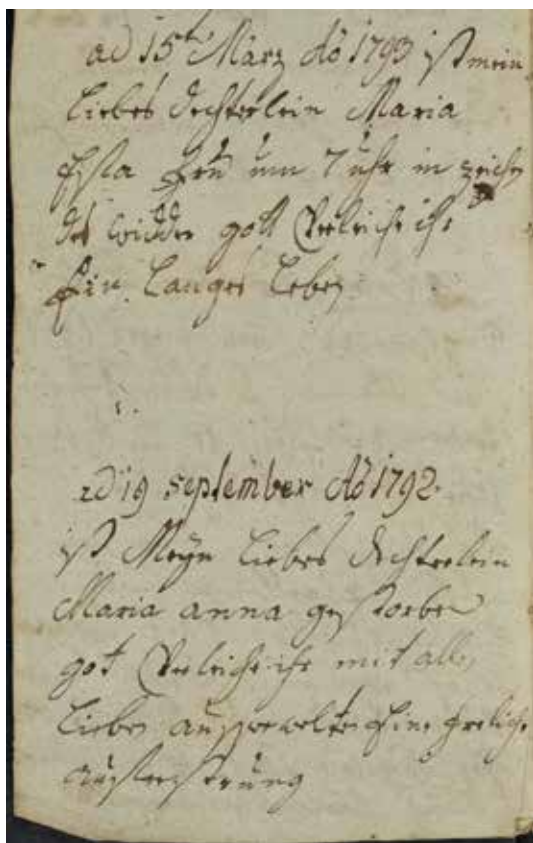 ad 15t März Ao 1793 ist mein
liebes dechterlein Maria
um 7 uhr in zeichen
des widder gott Verleiche ihr
Ein langes Leben
ad 19 september Ao 1792.
ist Meyn liebes dechterlein
Maria anna gestorben
got Verleiche ihr mit allen
lieben ausserwelten Eine freliche
auffersterung